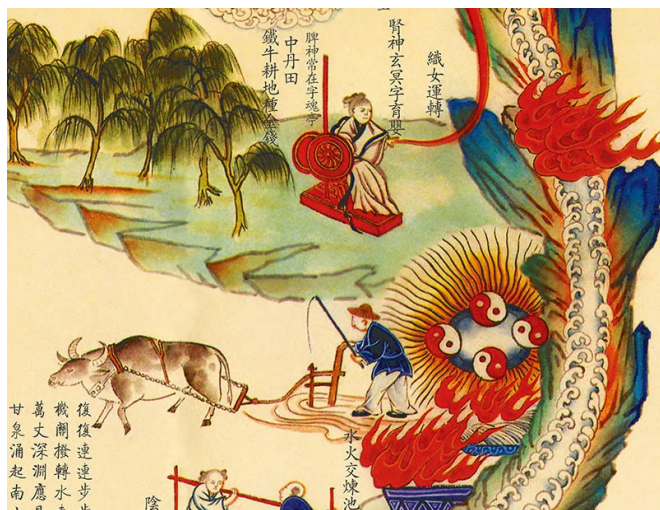 織女運轉
腎神玄冥字育嬰
脾神常在字魂亭
中丹田
鐵牛耕地種金錢
水火交煉池
陰
復復連連步步
機關撥轉水
萬丈深淵應
甘泉涌起南